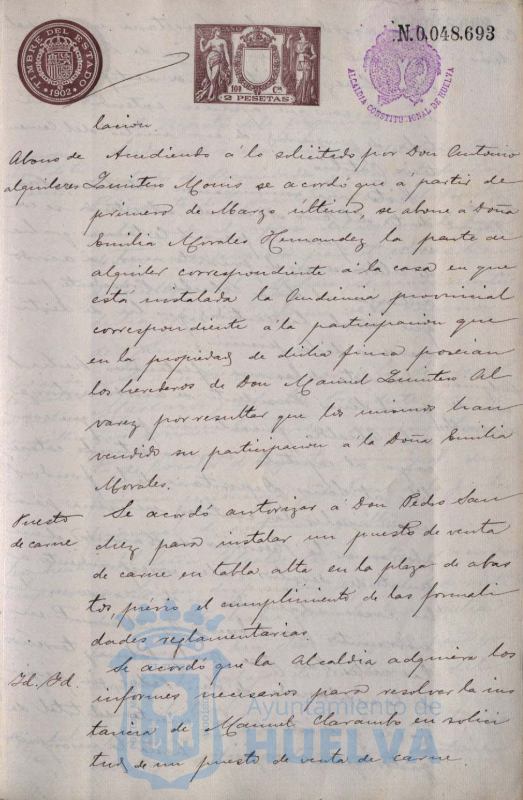 TIMBRE DEL ESTADO
1902
100 Cs
2 PESETAS
N.0,048.693
ALCALDIA CONSTITUCIONAL DE HUELVA
lacion
Abono de alquileres
Accediendo á lo solicitado por Don Antonio
Quintero Monis se acordó que á partir de
primero de Marzo último, se abone á Doña
Emilia Morales Hernandez la parte de
alquiler correspondiente á la casa en que
está instalada la Audiencia provincial
correspondiente á la participacion que
en la propiedad de dicha finca poseian
los herederos de Don Manuel Quintero Al
varez por resultar que los mismos han
vendido su participacion á la Doña Emilia
Morales.
Puesto de carne
Se acordó autorizar á Don Pedro San
chez para instalar un puesto de venta
de carne en tabla alta en la plaza de abas
tos, prévio el cumplimiento de las formali
dades reglamentarias.
Id. Id.
Se acordó que la Alcaldia adquiera los
informes necesarios para resolver la ins
tancia de Manuel Clarambo en solici
tud de un puesto de venta de carne.
Ayuntamiento de
HUELVA